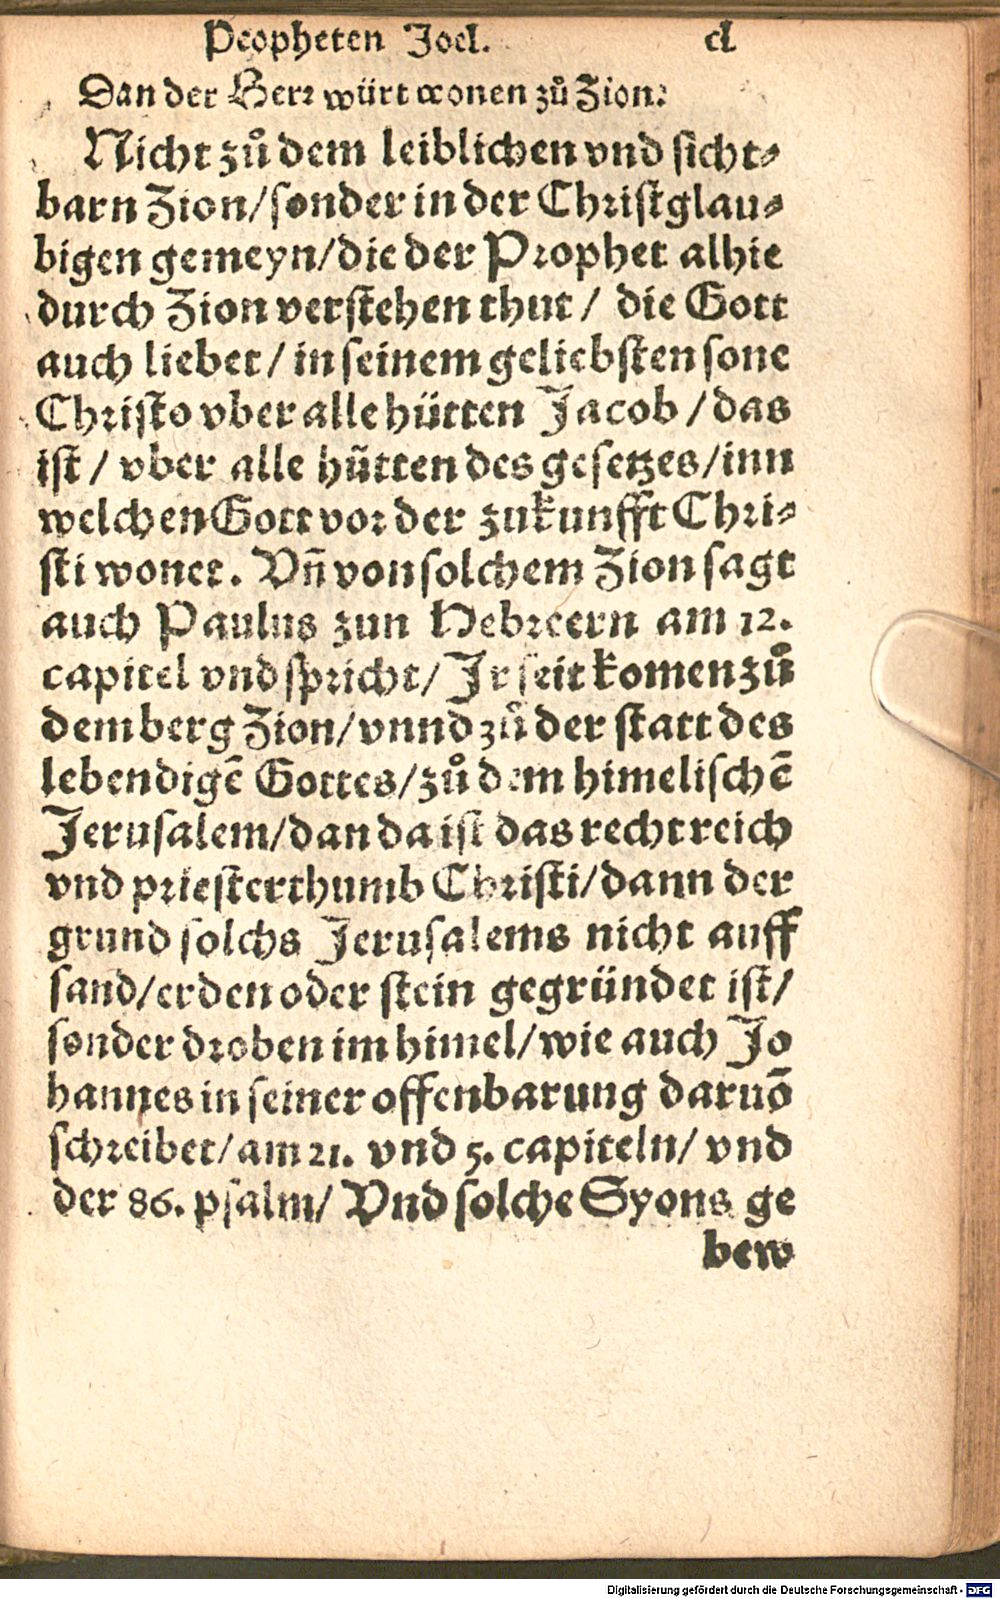 Propheten Joel. cl
Dan der Herr würt wonen zů Zion:
Nicht zů dem leiblichen vnd sicht⸗
barn Zion/sonder in der Christglau⸗
bigen gemeyn/die der Prophet alhie
durch Zion verstehen thut/ die Gott
auch liebet/in seinem geliebsten sone
Christo vber alle hütten Jacob/das
ist/vber alle hütten des gesetzes/inn
welchen Gott vor der zukunfft Chri⸗
sti wonet. Vñ von solchem Zion sagt
auch Paulus zun Hebreern am 12.
capitel vnd spricht/ Jr seit komen zů
dem berg Zion/vnnd zů der statt des
lebendigē Gottes/zů dem himelischē
Jerusalem/dan da ist das recht reich
vnd priesterthumb Christi/dann der
grund solchs Jerusalems nicht auff
sand/erden oder stein gegründet ist/
sonder droben im himel/wie auch Jo
hannes in seiner offenbarung daruō
schreibet/am 21. vnd 5. capiteln/ vnd
der 86. psalm/ Vnd solche Syons ge
bew
Digitalisierung gefördert durch die Deutsche Forschungsgemeinschaft - DFG